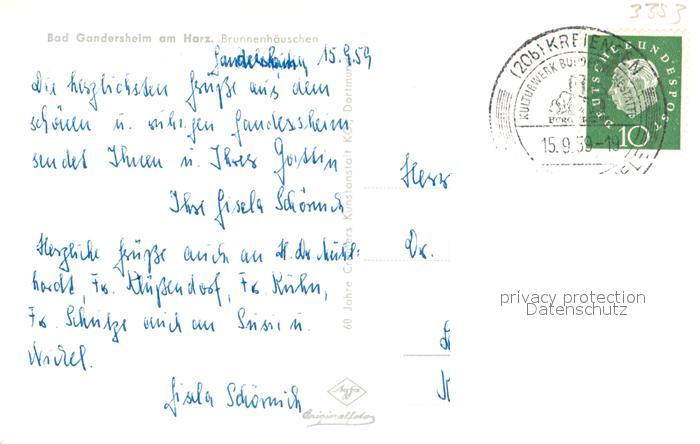 3353
Bad Gandersheim am Harz. Brunnenhäuschen
15.9.59
Die herzlichsten Grüße aus dem
schönen u. ruhigen Gandessheim
sendet Ihnen u. Ihrer Gattin
Ihre Gisela Schörnich
Herzliche Grüße auch an H. Dr. Mühl-
hardt, Fr. Klußendorf, Fr. Kühn,
Fr. Schulze auch an Susie u.
Gisela Schörnich
60 Jahre Cramers Kunstanstalt KG., Dortmund
Agfa
Originalfoto
Herr
Dr.
(20b) KREIENSEN
KULTURWERK
BURG
15.9.59-19
DEUTSCHE BUNDESPOST
10
privacy protection
Datenschutz